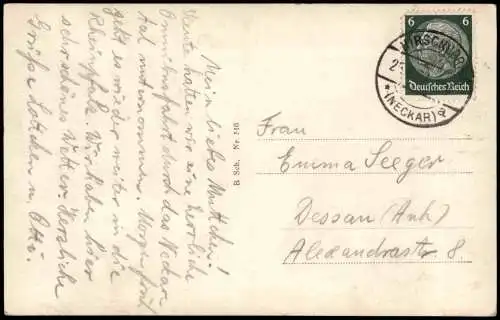 Mein liebes Muttchen!
Heute hatten wir eine herrliche
Omnibusfahrt durch das Neckar
tal unternommen. Morgen früh
geht es wieder weiter in die
Rheinpfalz. Wir haben hier
schönes Wetter. Herzliche
Grüße Lottchen u. Otto.
B. Sch. Nr. 516
6 6
Deutsches Reich
HIRSCHHORN
* (NECKAR)
Frau
Emma Seeger
Dessau (Anh)
Alexandrastr 8.